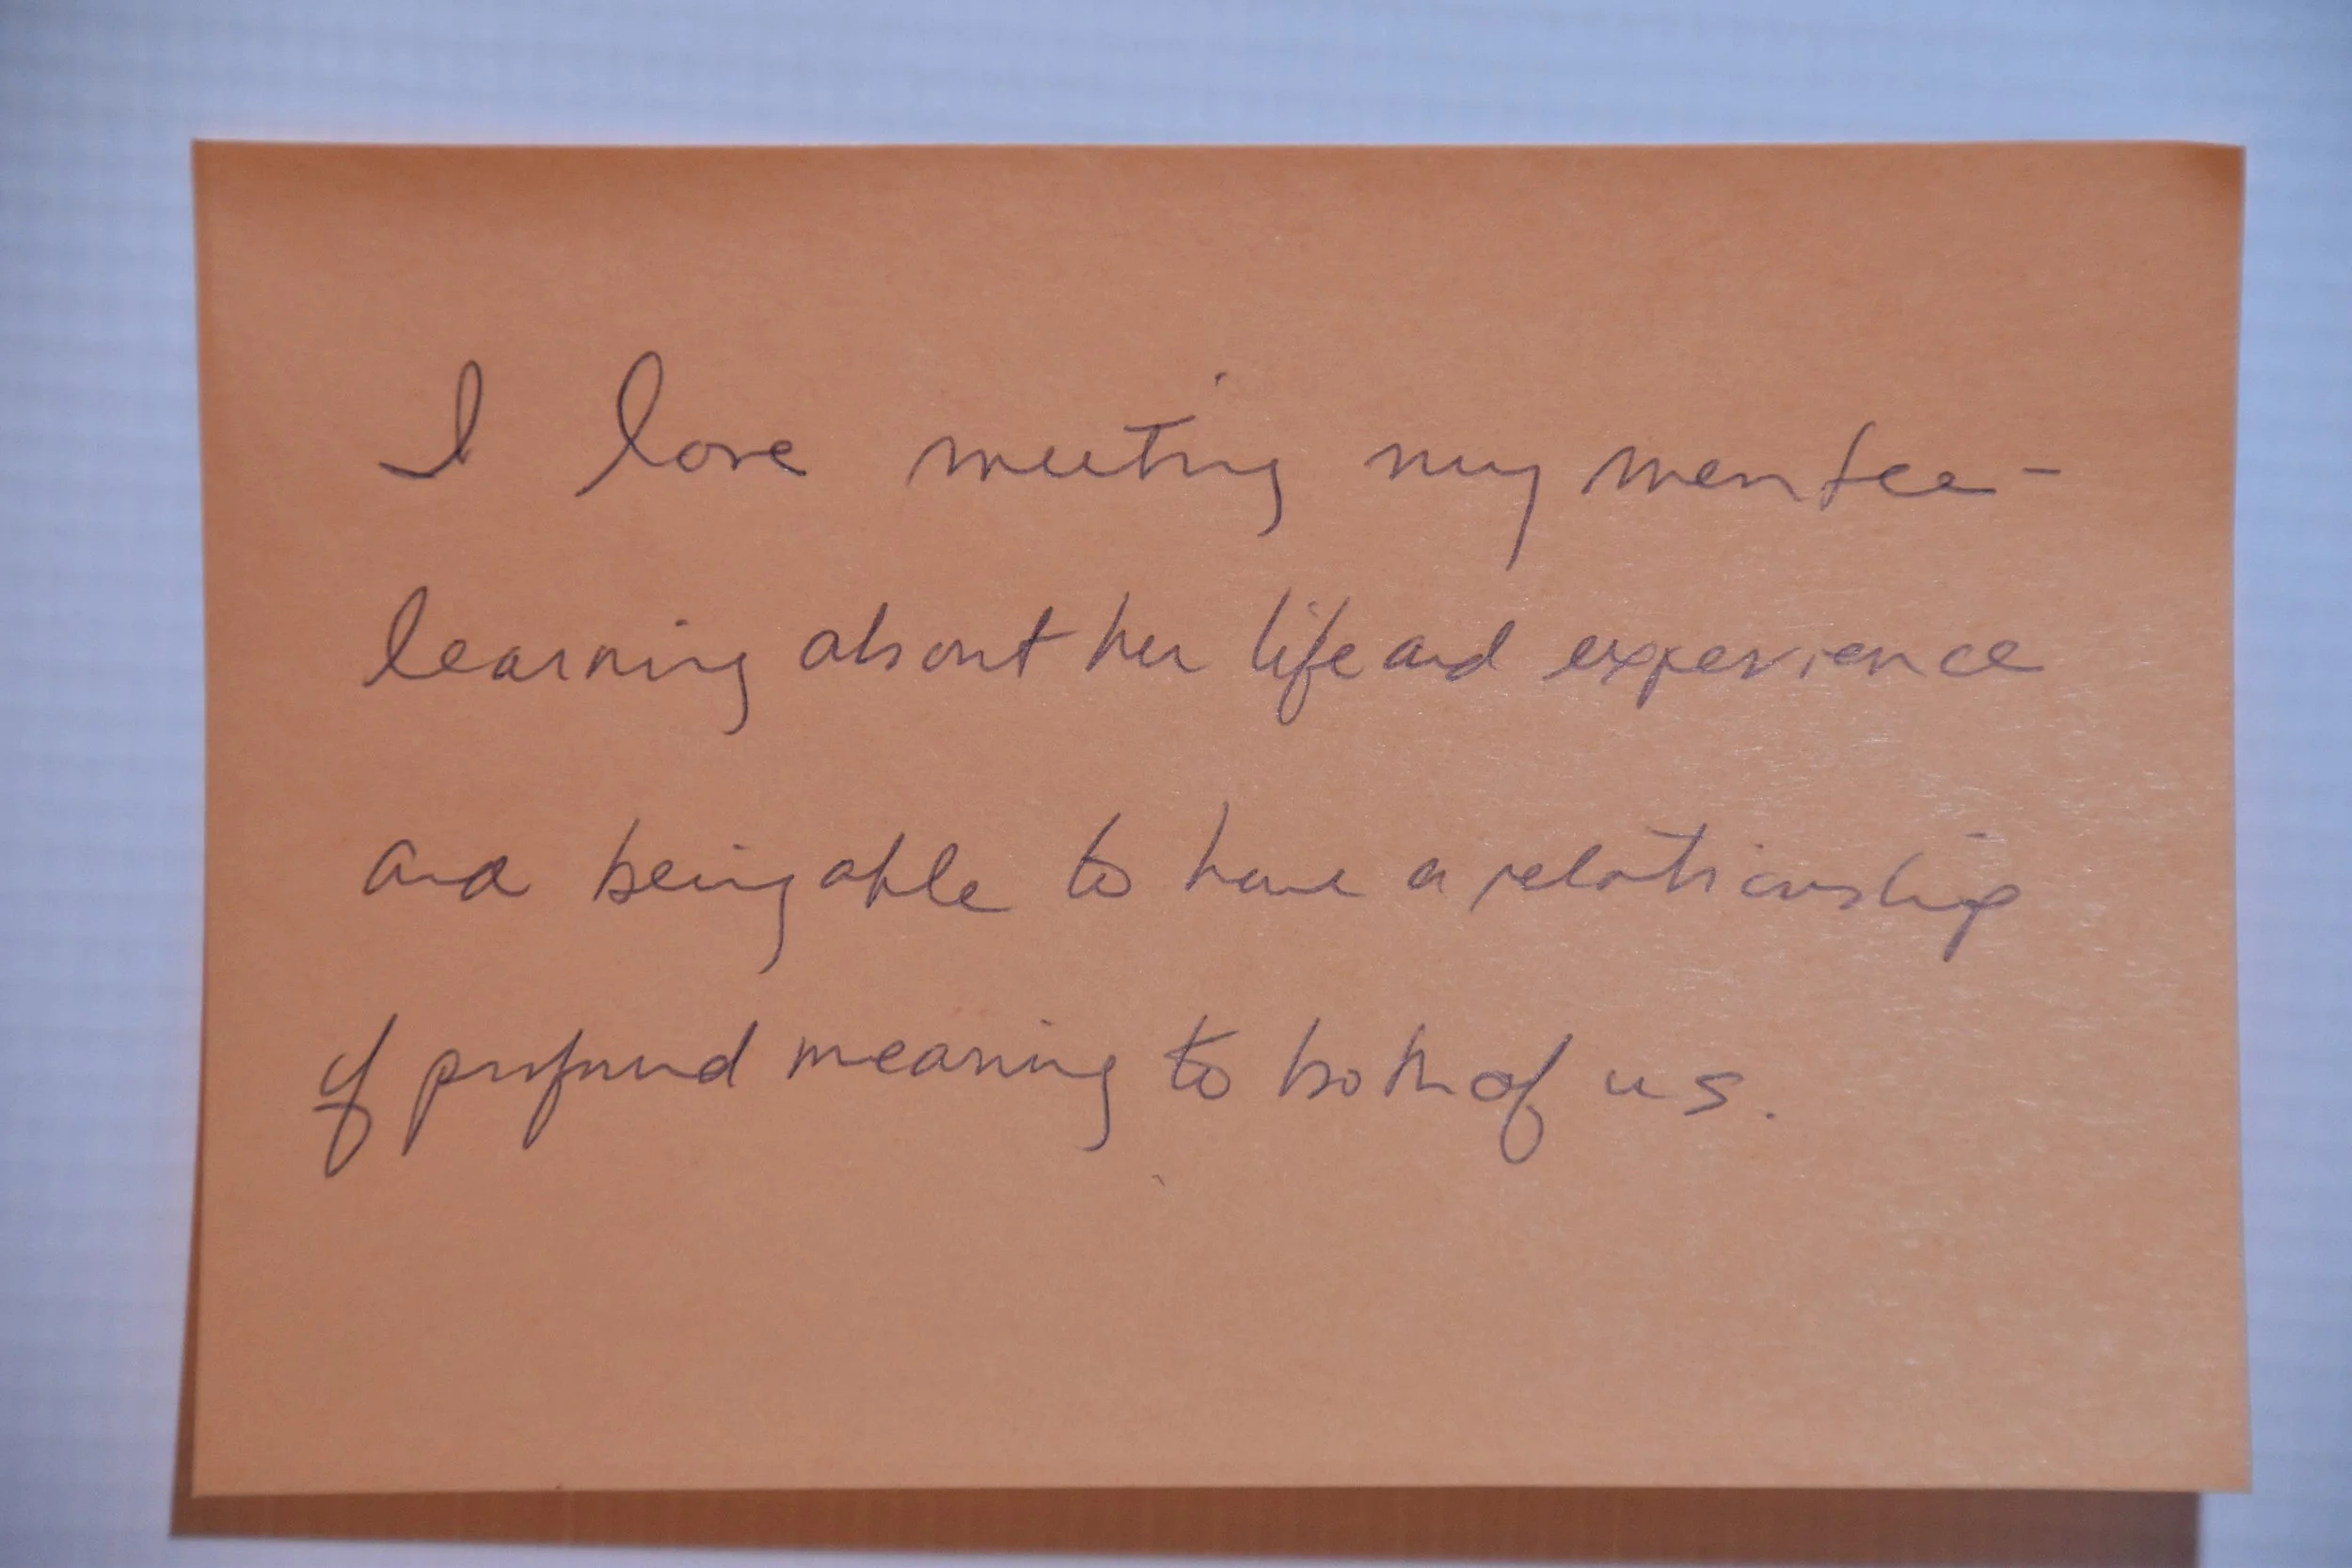 I love meeting my mentee -
learning about her life and experience
and being able to have a relationship
of profound meaning to both of us.